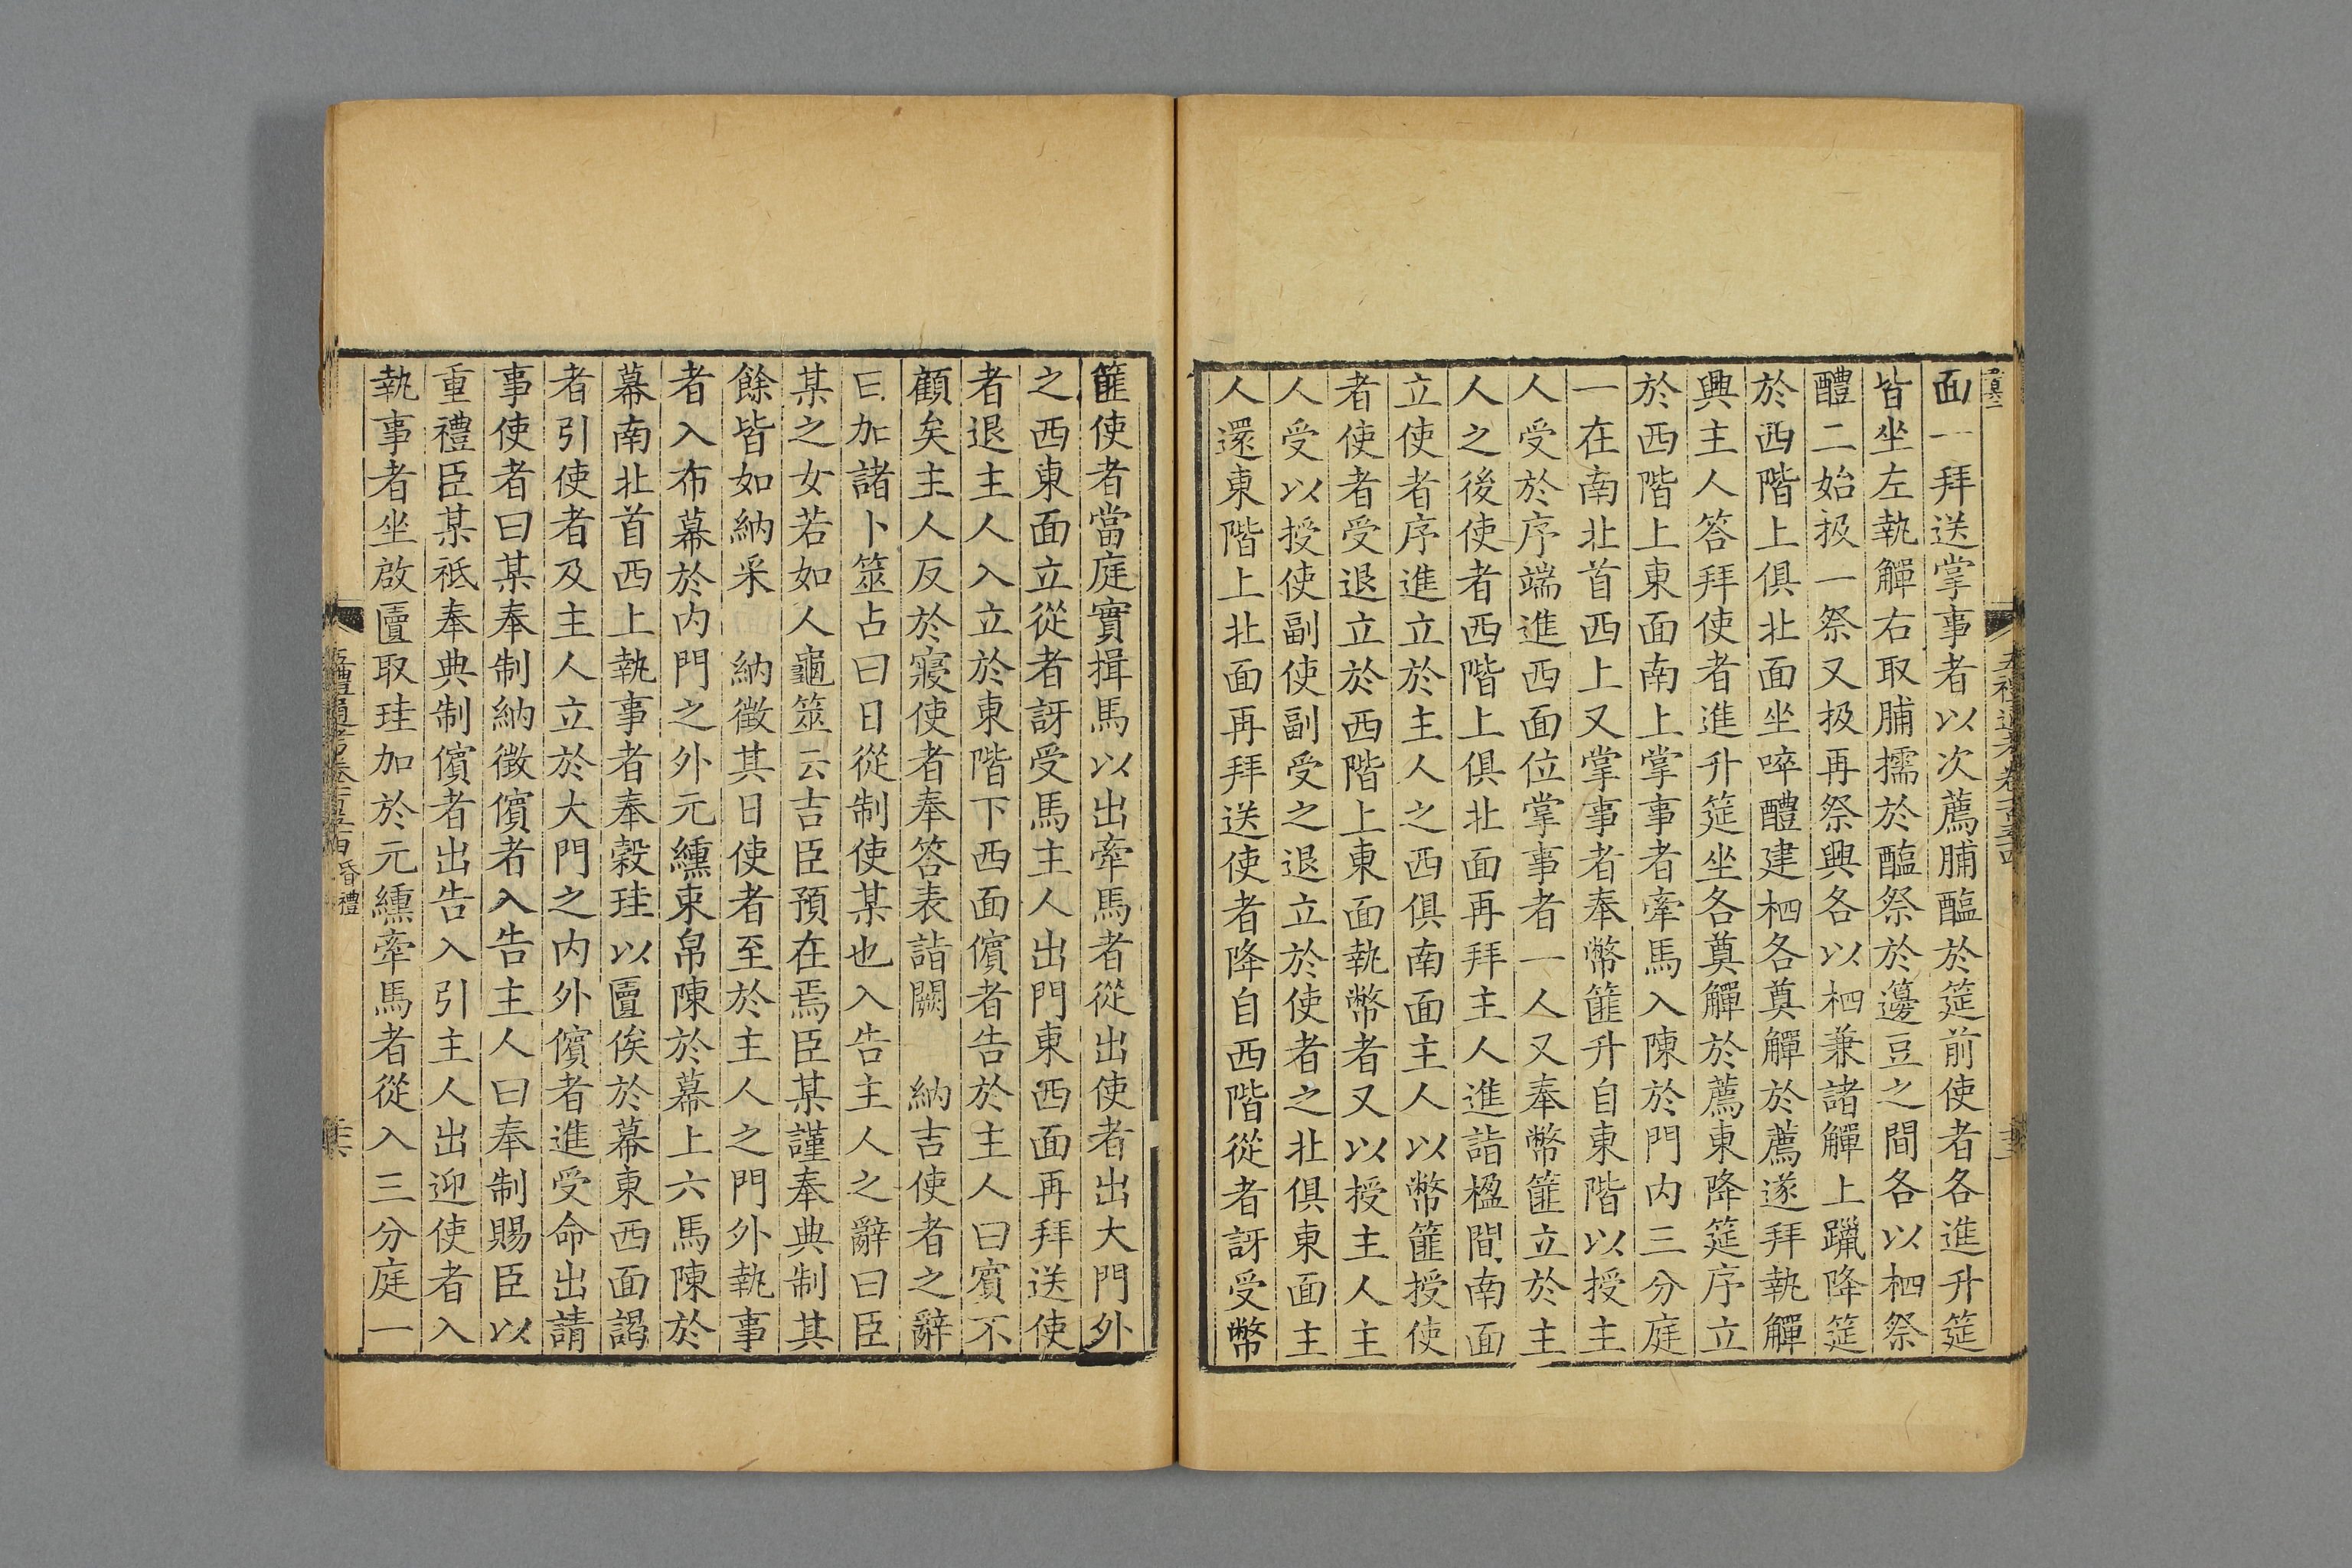 面一拜送掌事者以次薦脯醢於筵前使者各進升筵
皆坐左執觶右取脯擩於醢祭於籩豆之間各以柶祭
醴二始扱一祭又扱再祭興各以柶兼諸觶上躐降筵
於西階上俱北面坐啐醴建柶各奠觶於薦遂拜執觶
興主人答拜使者進升筵坐各奠觶於薦東降筵序立
於西階上東面南上掌事者牽馬入陳於門内三分庭
一在南北首西上又掌事者奉幣篚升自東階以授主
人受於序端進西面位掌事者一人又奉幣篚立於主
人之後使者西階上俱北面再拜主人進詣楹間南面
立使者序進立於主人之西俱南面主人以幣篚授使
者使者受退立於西階上東面執幣者又以授主人主
人受以授使副使副受之退立於使者之北俱東面主
人還東階上北面再拜送使者降自西階從者訝受幣
篚使者當庭實揖馬以出牽馬者從出使者出大門外
之西東面立從者訝受馬主人出門東西面再拜送使
者退主人入立於東階下西面儐者告於主人曰賓不
顧矣主人反於寢使者奉答表詣闕 納吉使者之辭
曰加諸卜筮占曰日從制使某也入告主人之辭曰臣
某之女若如人龜筮云吉臣預在焉臣某謹奉典制其
餘皆如納采 納徵其日使者至於主人之門外執事
者入布幕於内門之外元纁束帛陳於幕上六馬陳於
幕南北首西上執事者奉穀珪以匵俟於幕東西面謁
者引使者及主人立於大門之内外儐者進受命出請
事使者曰某奉制納徵儐者入告主人曰奉制賜臣以
重禮臣某祗奉典制儐者出告入引主人出迎使者入
執事者坐啟匵取珪加於元纁牽馬者從入三分庭一
五禮通考卷一百五十四 婚禮